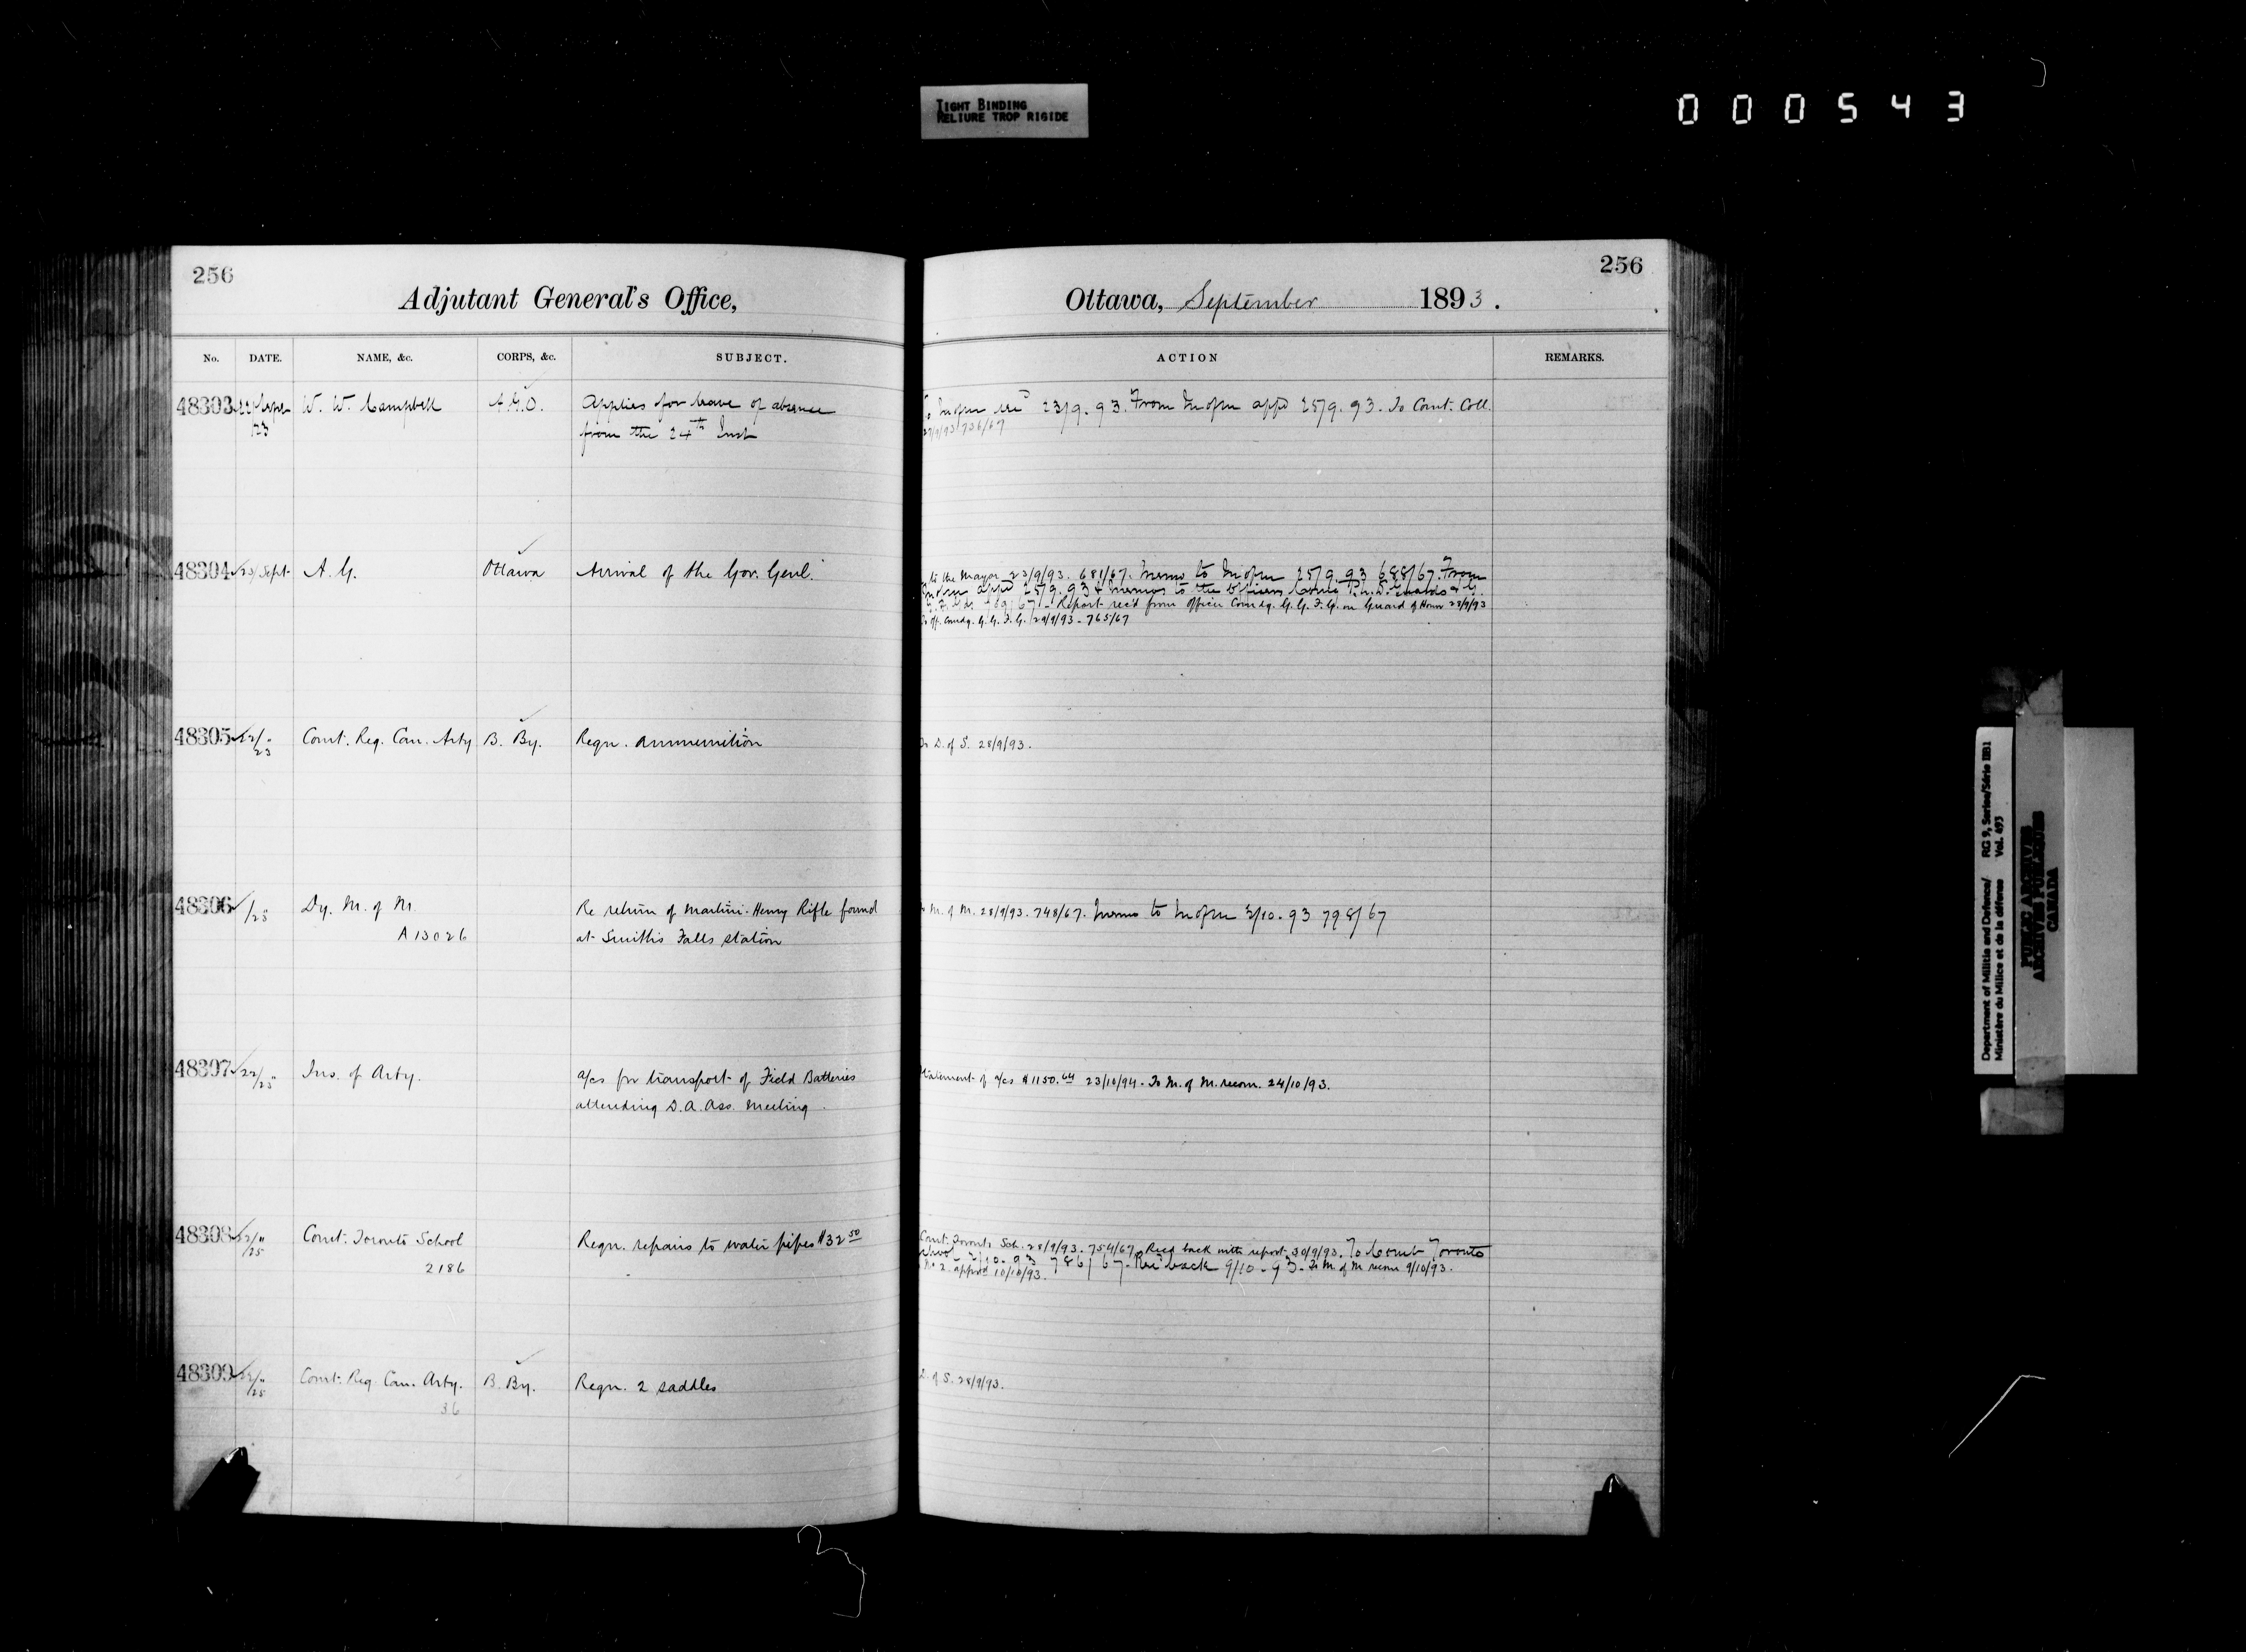 TIGHT BINDING
RELIURE TROP RIGIDE
000543
256
256
Adjutant General's Office,
Ottawa, September 1893.
No. DATE. NAME, &c. CORPS, &c. SUBJECT. ACTION REMARKS.
48303 W. W. Campbell A.G.O. Applies for leave of absence
from the 24th Inst
23/9.93. From appd 25/9.93. To Comt. Coll.
48304 23/Sept A.G. Ottawa Arrival of the Gov. Genl.
to the Mayor 23/9/93. 681/67. Memo to 25/9.93 688/67. From
appd 25/9.93 & memos to the Officers
Report rec'd from Officer Comdg. G.G.F.G. on Guard of Honor 28/9/93
Off. Comdg. G.G.F.G. 29/9/93 - 765/67
48305 22/" 23 Comt. Reg. Can. Arty B. By. Reqn. ammunition
To D. of S. 28/9/93.
48306 /25 Dy. M. of M. Re return of Martini-Henry Rifle found
A13026 at Smith's Falls station
M. of M. 28/9/93. 748/67. Memo to 3/10.93 798/67
48307 22/25 Ins. of Arty. a/cs for transport of Field Batteries
attending D.A. Ass. Meeting.
Statement of a/cs $1150.64 23/10/94. To M. of M. recom. 24/10/93.
48308 22/" /25 Comt. Toronto School Reqn. repairs to water pipes $32 50
2186
Comt. Toronto Sch. 28/9/93. 754/67. Recd back with report 30/9/93. To Comt Toronto
School 2/10.93 786/67. Rec'd back 9/10.93. To M. of M recom 9/10/93.
No 2. approved 10/10/93.
48309 22/" /25 Comt. Reg. Can. Arty. B. By. Reqn. 2 saddles
36
D. of S. 28/9/93.
Department of Militia and Defence/ RG 9, Series/Série IIB1
Ministère du Milice et de la défense Vol. 493
PUBLIC ARCHIVES
ARCHIVES PUBLIQUES
CANADA